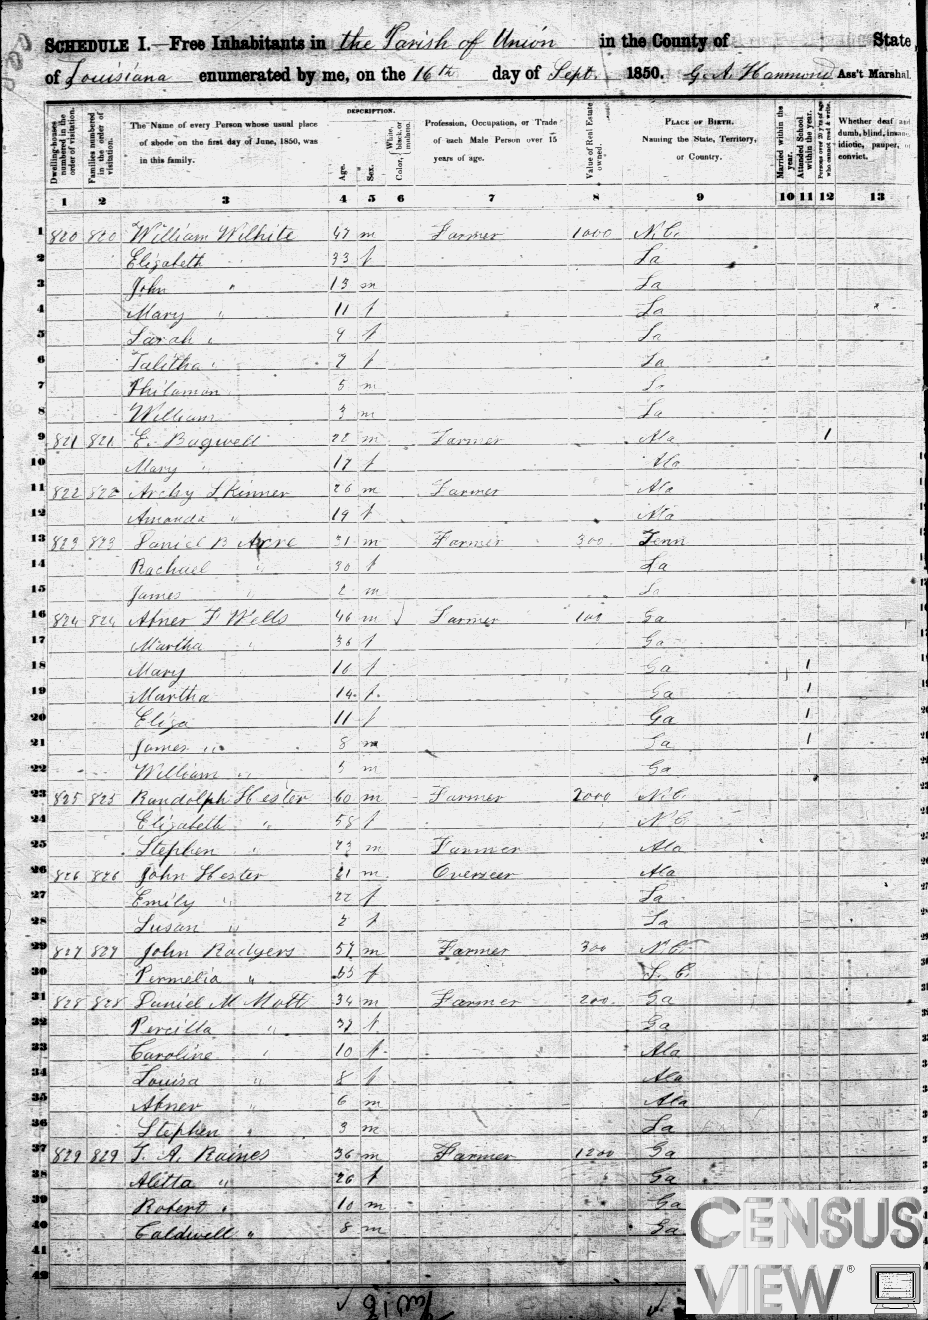 SCHEDULE I.—Free Inhabitants in the Parish of Union in the County of State
of Louisiana enumerated by me, on the 16th day of Sept. 1850. G. A. Hammond Ass't Marshal.
Dwelling-houses numbered in the order of visitation.
Families numbered in the order of visitation.
The Name of every Person whose usual place of abode on the first day of June, 1850, was in this family.
DESCRIPTION.
Age.
Sex.
Color, White, black, or mulatto.
Profession, Occupation, or Trade of each Male Person over 15 years of age.
Value of Real Estate owned.
PLACE OF BIRTH. Naming the State, Territory, or Country.
Married within the year.
Attended School within the year.
Persons over 20 y'rs of age who cannot read & write.
Whether deaf and dumb, blind, insane, idiotic, pauper, or convict.
1 2 3 4 5 6 7 8 9 10 11 12 13
1 820 820 William Wilhite 47 m Farmer 1000 N.C.
2 Elizabeth " 33 f La
3 John " 13 m La
4 Mary " 11 f La
5 Sarah " 9 f La
6 Talitha " 7 f La
7 Philaman 5 m La
8 William 3 m La
9 821 821 E. Bagwell 22 m Farmer Ala 1
10 Mary " 17 f Ala
11 822 822 Archy Skinner 26 m Farmer Ala
12 Amanda " 19 f Ala
13 823 823 Daniel B Acre 31 m Farmer 300 Tenn
14 Rachael " 30 f La
15 James " 2 m La
16 824 824 Abner F Wells 46 m Farmer 100 Ga
17 Martha " 36 f Ga
18 Mary 16 f Ga 1
19 Martha 14 f Ga 1
20 Eliza 11 f Ga 1
21 James " 8 m Ga 1
22 William " 5 m Ga
23 825 825 Randolph Hester 60 m Farmer 2000 N.C.
24 Elizabeth " 58 f N C
25 Stephen " 23 m Farmer Ala
26 826 826 John Hester 21 m Overseer Ala
27 Emily " 22 f La
28 Susan " 2 f La
29 827 827 John Rodgers 57 m Farmer 300 N.C.
30 Permelia " 55 f S.C.
31 828 828 Daniel M Mott 34 m Farmer 200 Ga
32 Percilla " 37 f Ga
33 Caroline " 10 f Ala
34 Louisa " 8 f Ala
35 Abner " 6 m Ala
36 Stephen " 3 m La
37 829 829 T. A. Raines 36 m Farmer 1200 Ga
38 Aletta " 26 f Ga
39 Robert " 10 m Ga
40 Caldwell " 8 m Ga
41
42
CENSUS
VIEW®